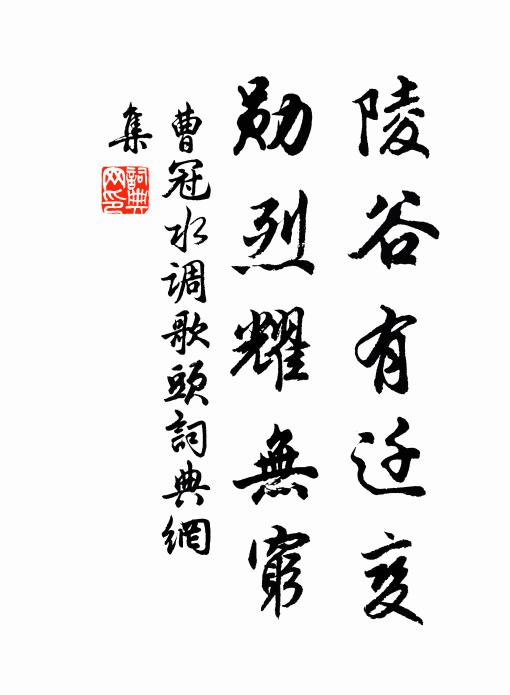 陵谷有迁变
勋烈耀無窮
曹冠水调歌頭詞典網
集
詞典网印